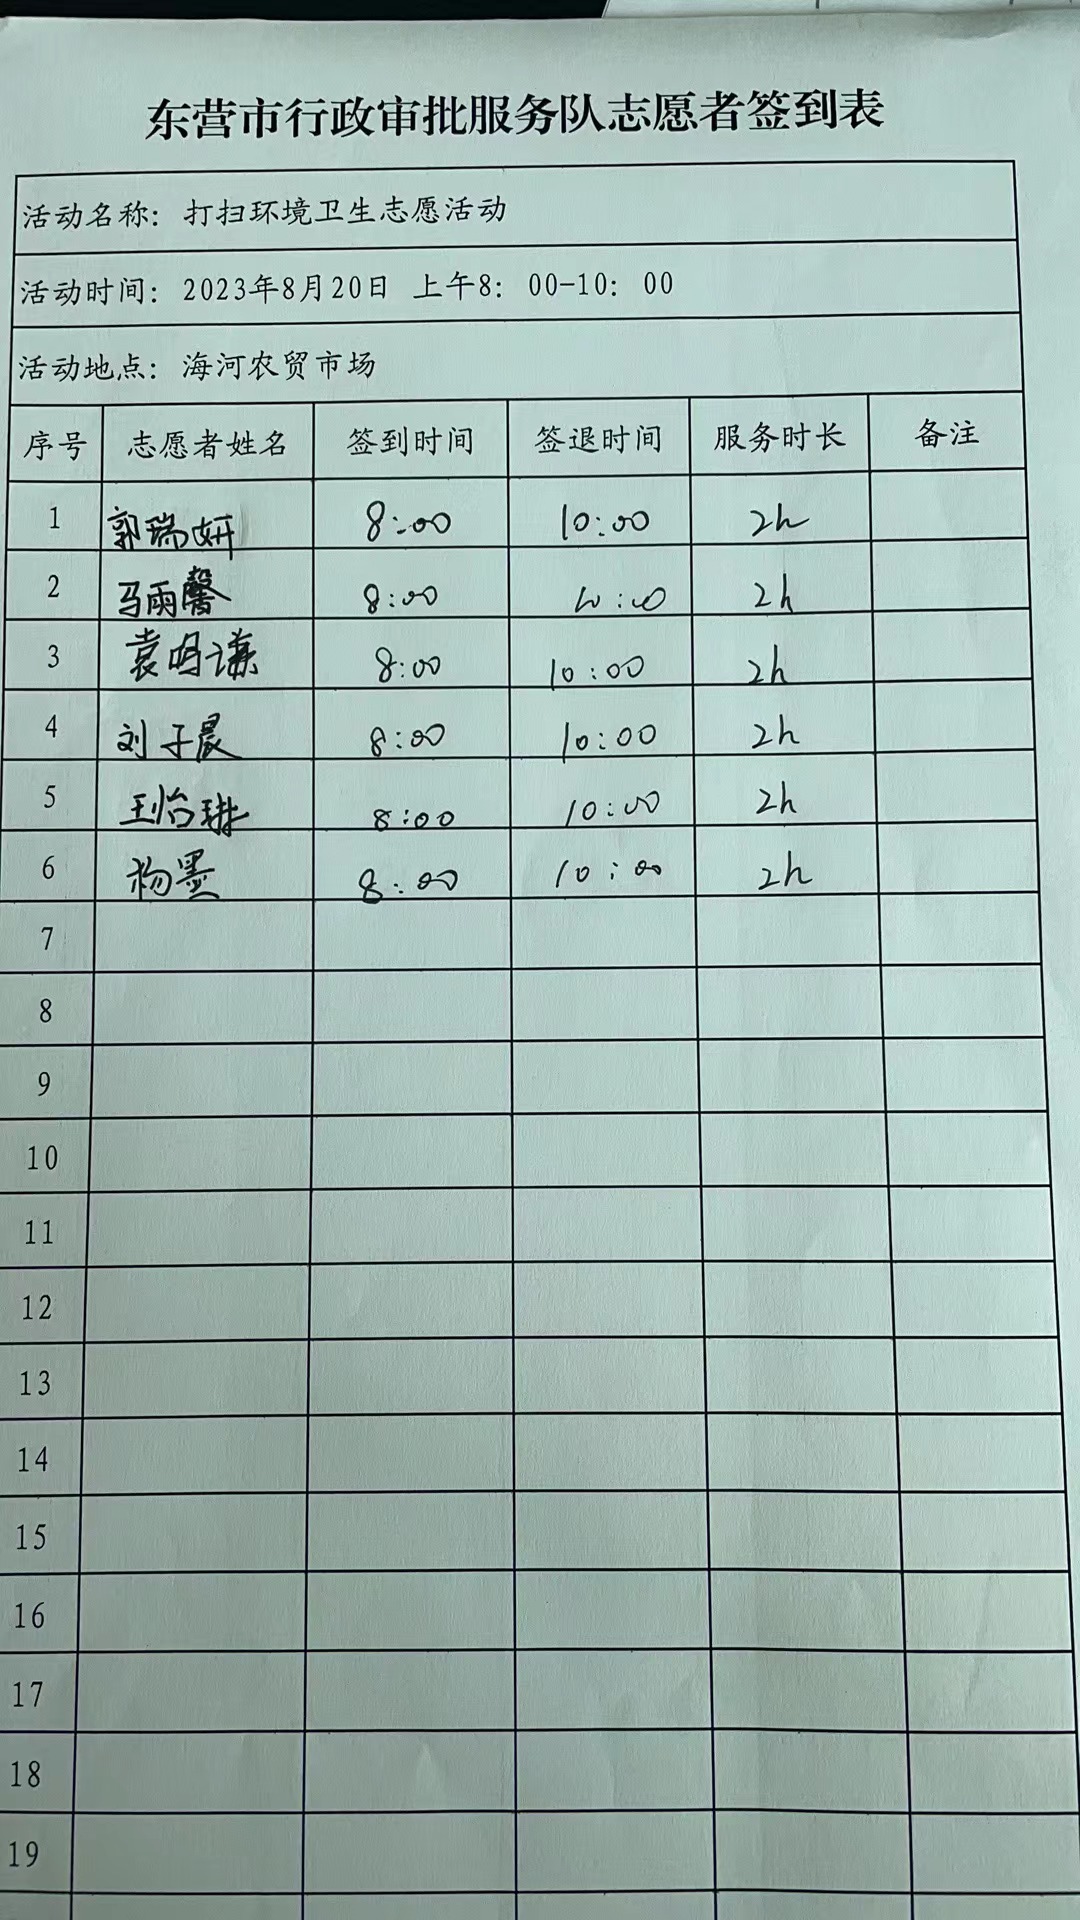 东营市行政审批服务队志愿者签到表
活动名称：打扫环境卫生志愿活动
活动时间：2023年8月20日 上午8：00-10：00
活动地点：海河农贸市场
序号 志愿者姓名 签到时间 签退时间 服务时长 备注
1 郭瑞妍 8:00 10:00 2h
2 马雨馨 8:00 10:00 2h
3 袁鸣谦 8:00 10:00 2h
4 刘子晨 8:00 10:00 2h
5 王怡琳 8:00 10:00 2h
6 杨墨 8:00 10:00 2h
7
8
9
10
11
12
13
14
15
16
17
18
19